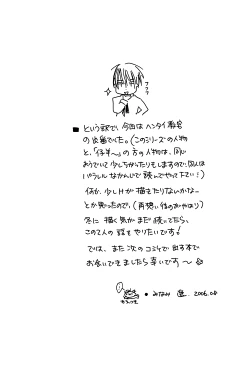 フフフ
■ という訳で、今回はヘンタイ教官
の後輩でした。(このシリーズの人物
と、「仔羊〜」の方の人物は、同じ
ようでいて少しちがったりもしますので、
パラレルなかんじで読んでやって下さい!)
何か、少しHが描きたりないかなー
とか思ったので、(再想い後のおやおり)
冬に描く気がまだ残ってたら、
この2人の話をやりたいです!
では、また次のコミケで出す本で
お会いできましたら幸いです〜☆
みなみ 遥. 2006.08